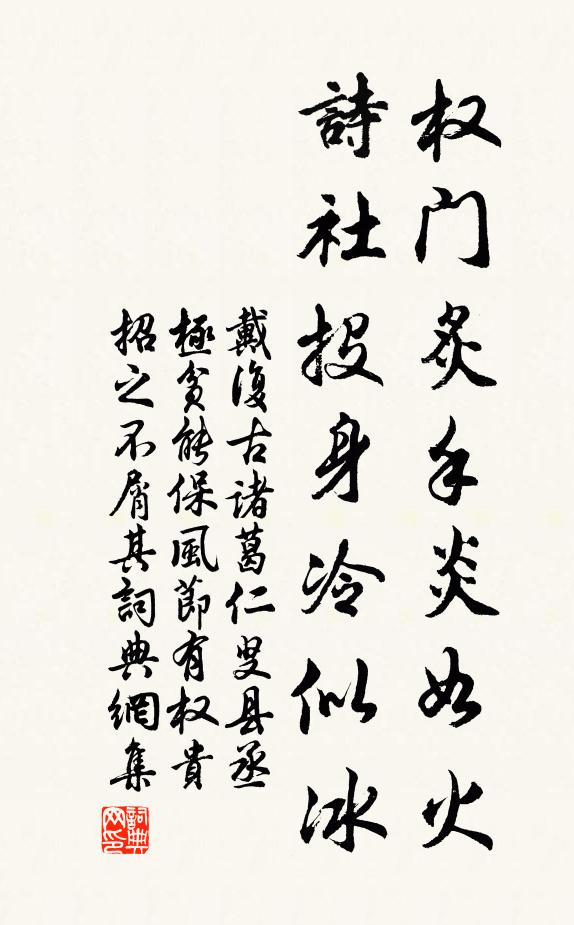 权门炙手炎如火
詩社投身冷似冰
戴復古諸葛仁叟县丞
極貧能保風節有权貴
招之不屑其詞典網集
詞典
网印